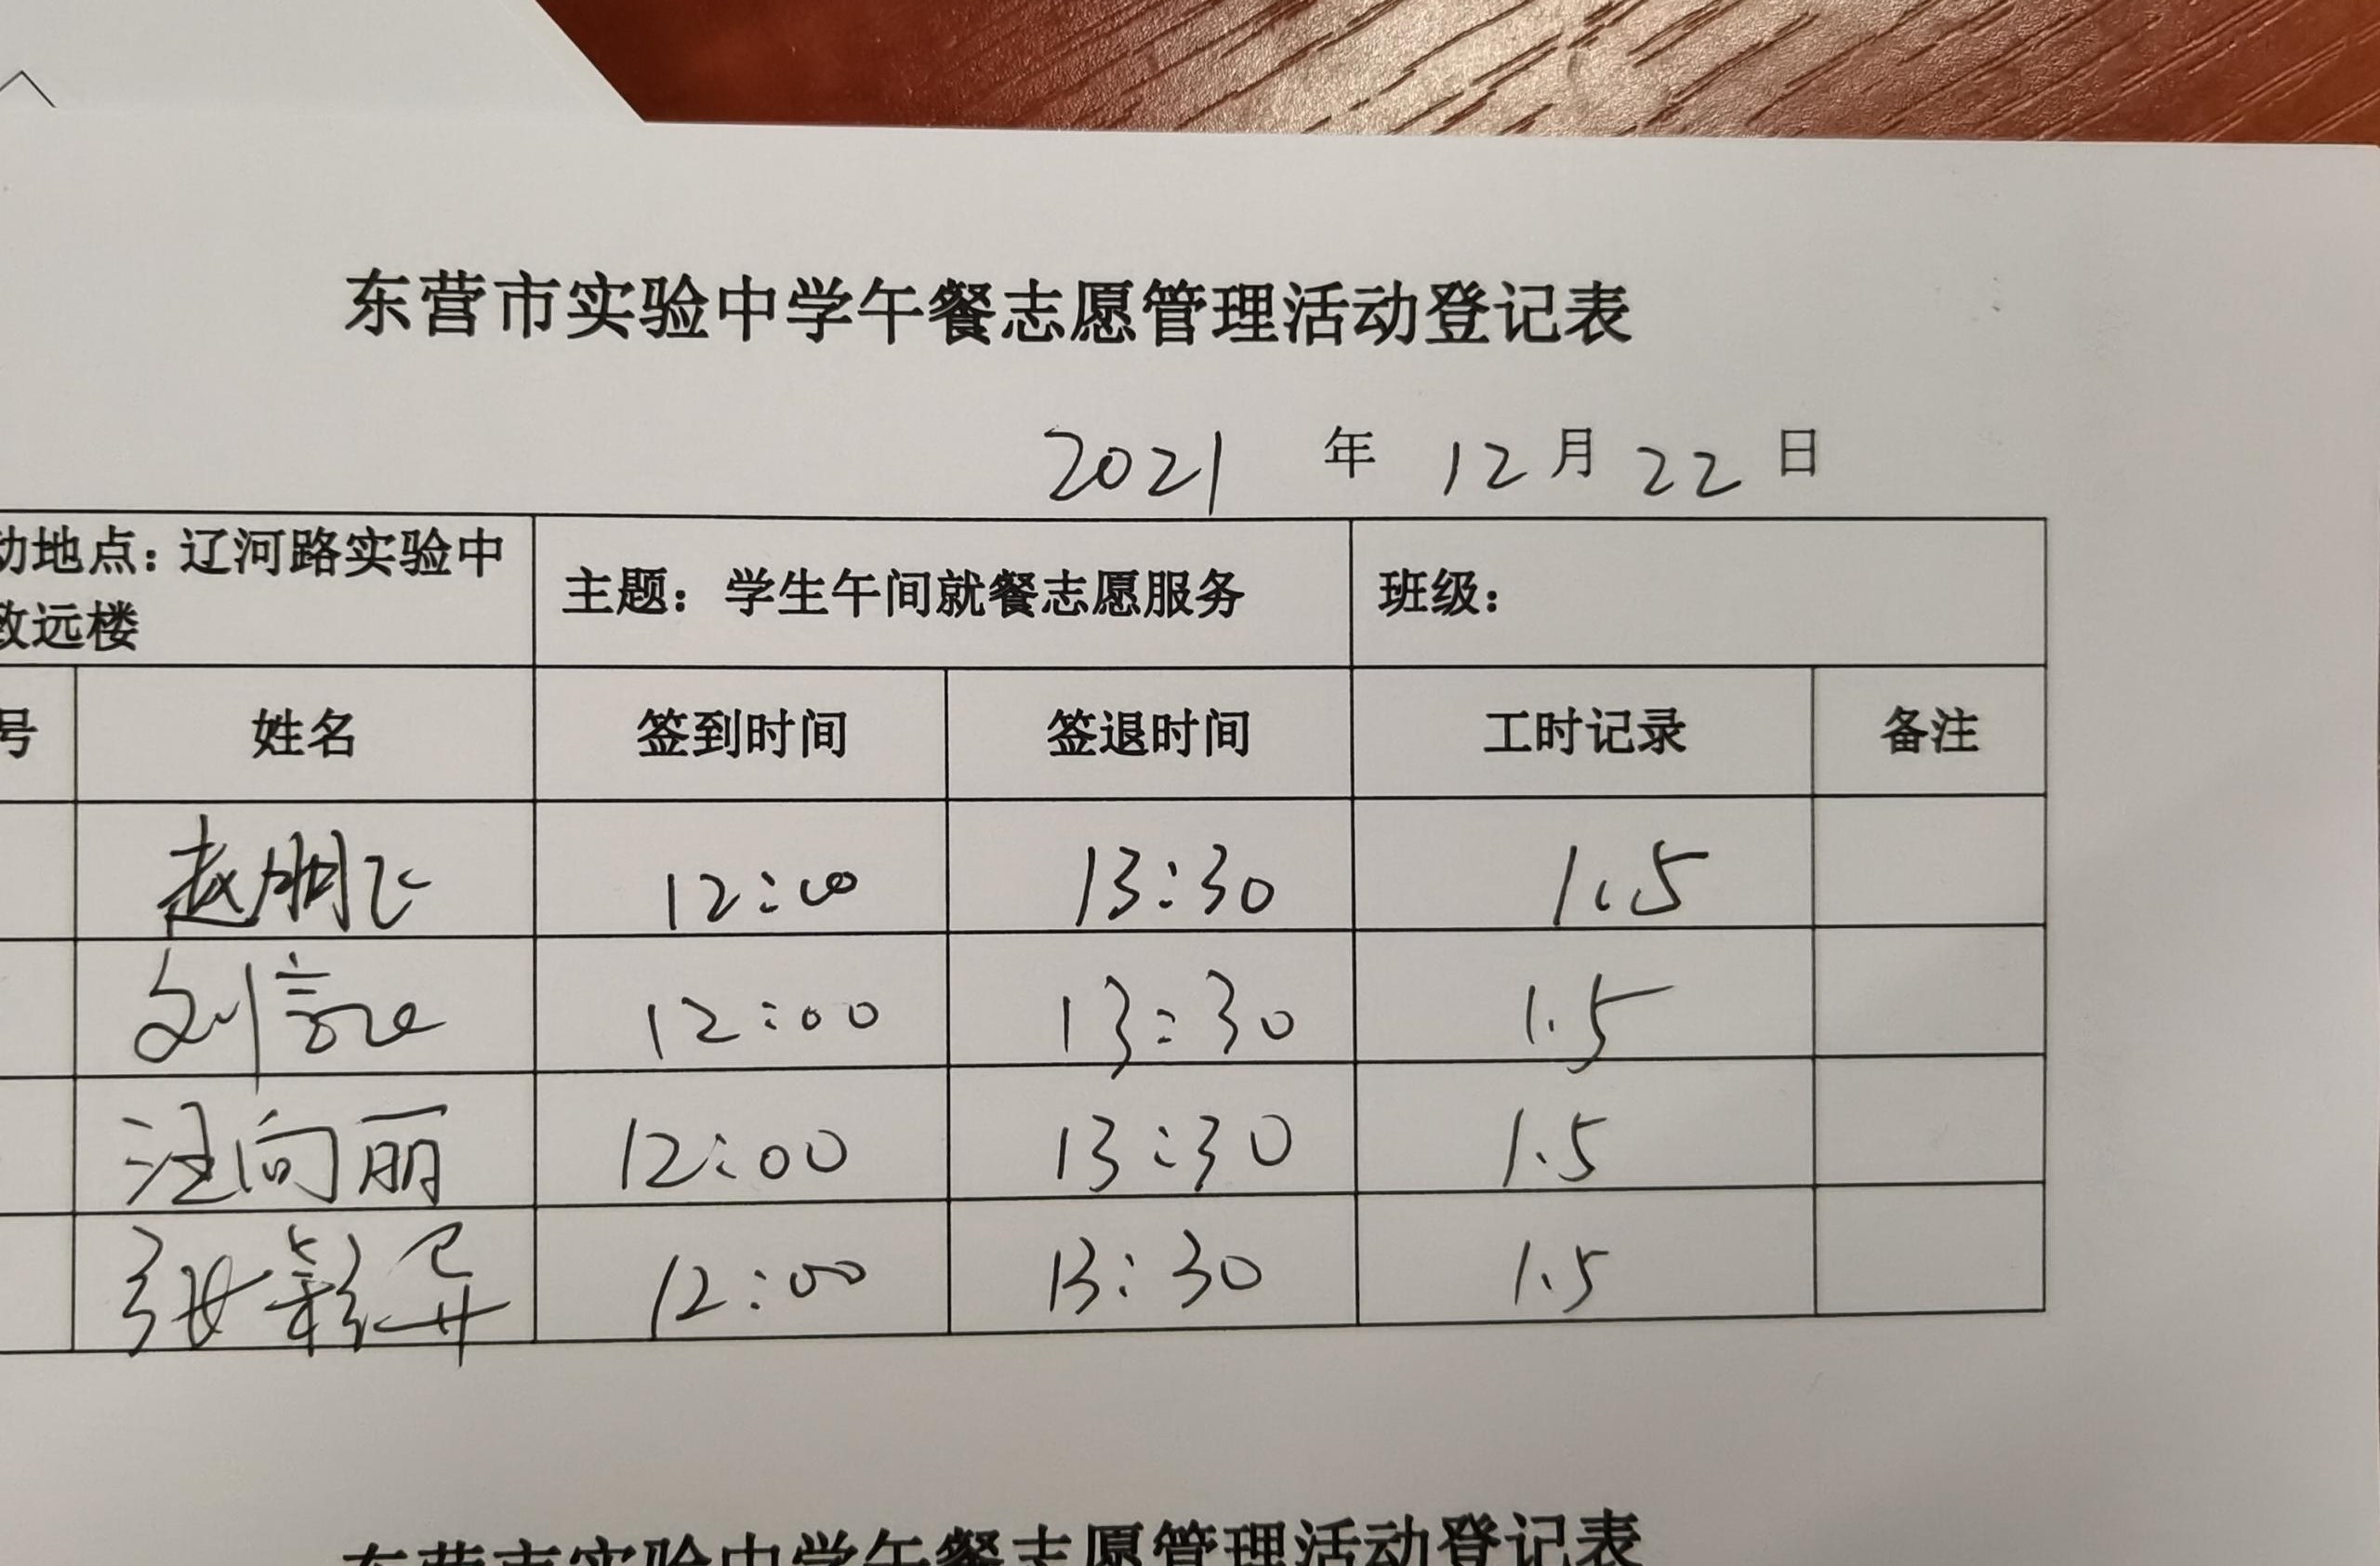 东营市实验中学午餐志愿管理活动登记表
2021 年 12 月 22 日
动地点：辽河路实验中 主题：学生午间就餐志愿服务 班级：
致远楼
号 姓名 签到时间 签退时间 工时记录 备注
赵鹏飞 12:00 13:30 1.5
刘 12:00 13:30 1.5
汪向丽 12:00 13:30 1.5
张彩 12:00 13:30 1.5
东营市实验中学午餐志愿管理活动登记表